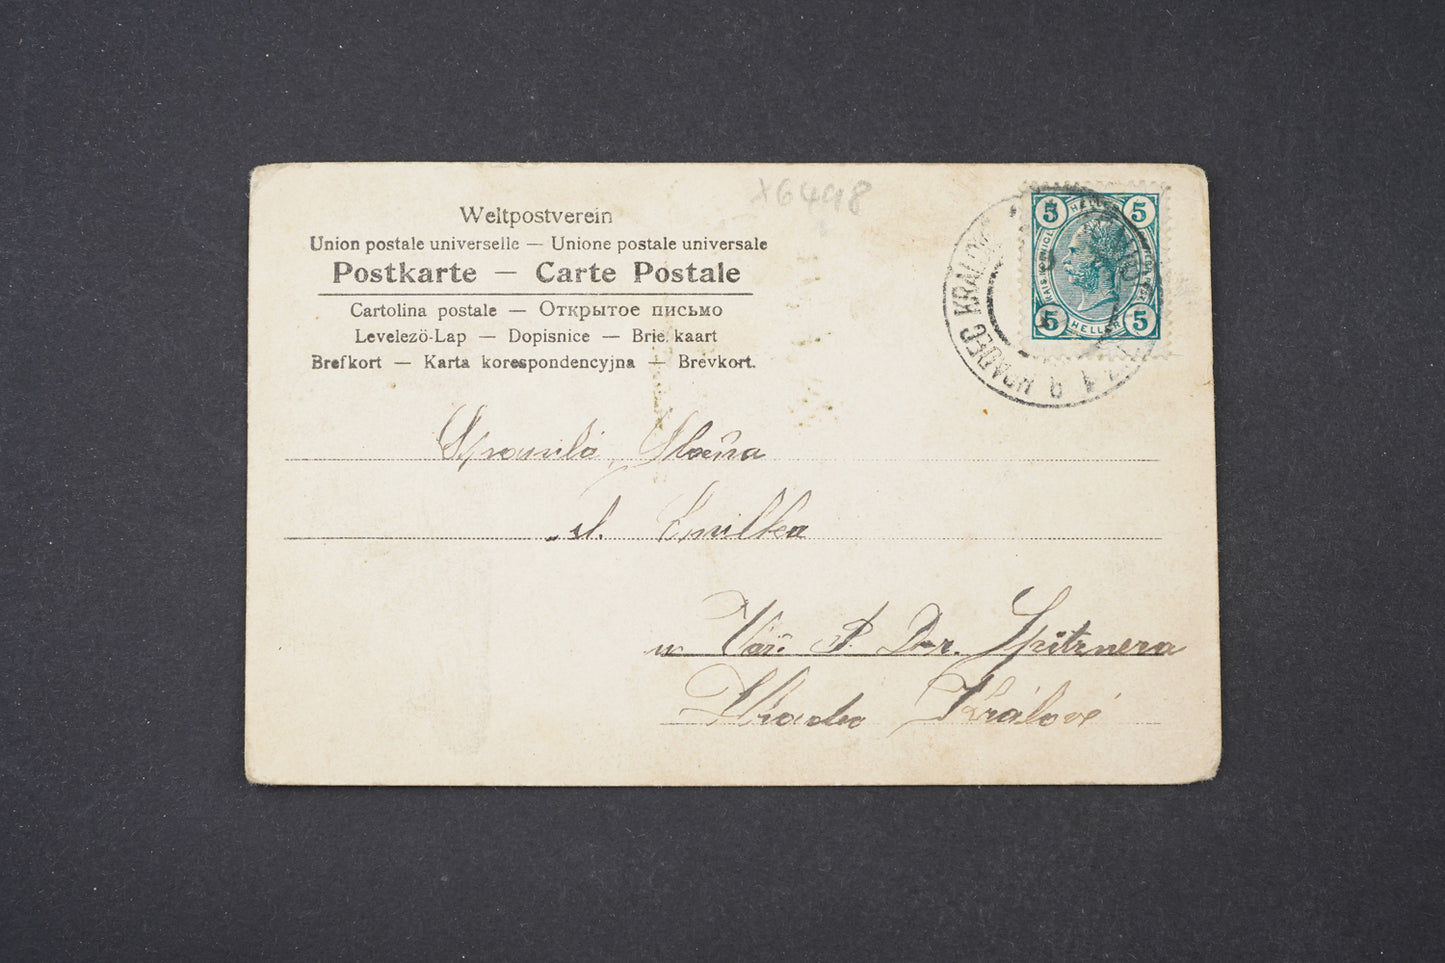 x6498
Weltpostverein
Union postale universelle — Unione postale universale
Postkarte — Carte Postale
Cartolina postale — Открытое письмо
Levelezö-Lap — Dopisnice — Brie. kaart
Brefkort — Karta korespondencyjna — Brevkort.
5 5
5 HELLER 5
HRADEC KRÁLOVÉ
Slečna
sl. Emilka
u P. Dr. Spitznera
Králové